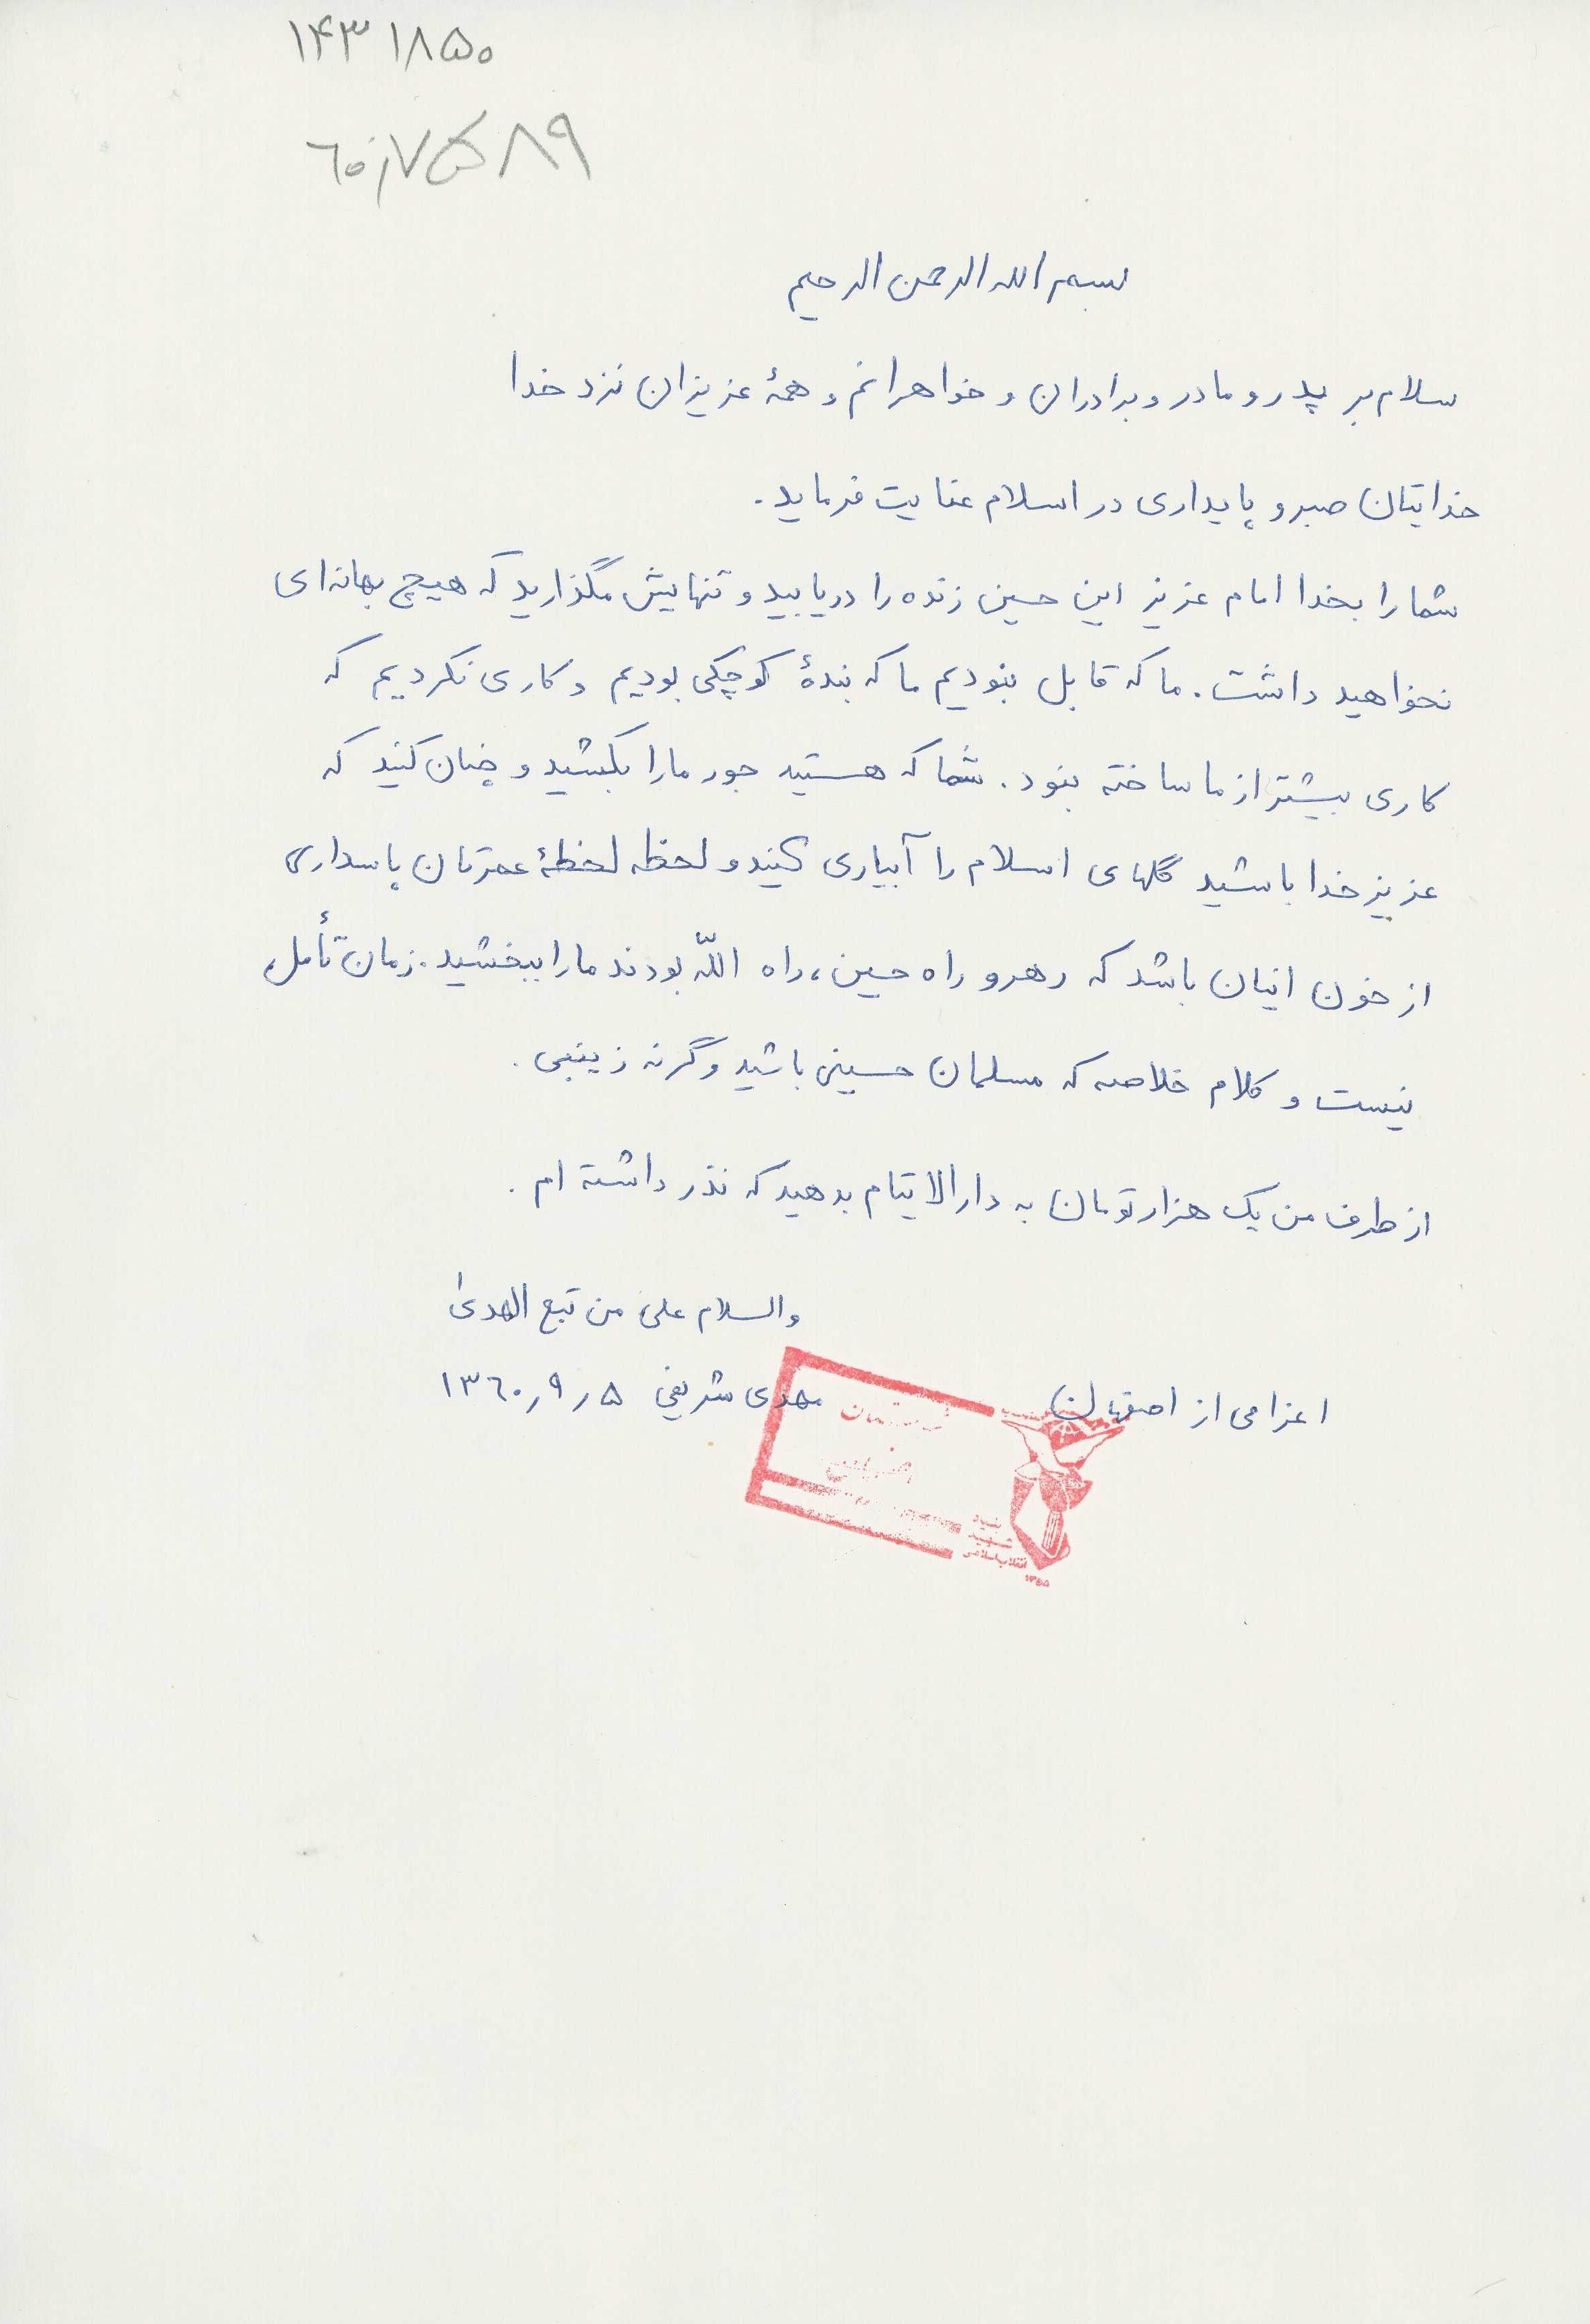 ۱۴۳۱۸۵۰
بسم الله الرحمن الرحیم
سلام بر پدر و مادر و برادران و خواهرانم و همهٔ عزیزان نزد خدا
خدایتان صبر و پایداری در اسلام عنایت فرماید.
شما را بخدا امام عزیز این حسین زنده را دریابید و تنهایش مگذارید که هیچ بهانه‌ای
نخواهید داشت. ما که قابل نبودیم ما که بندهٔ کوچکی بودیم و کاری نکردیم که
کاری بیشتر از ما ساخته نبود. شما که هستید جور ما را بکشید و چنان کنید که
عزیز خدا باشید گلهای اسلام را آبیاری کنید و لحظه لحظهٔ عمرتان پاسداری
از خون اینان باشد که رهرو راه حسین، راه اللّه بودند ما را ببخشید. زمان تأمل
نیست و کلام خلاصه که مسلمان حسینی باشید وگرنه زینبی.
از طرف من یک هزار تومان به دارالایتام بدهید که نذر داشته ام.
والسلام علی من تبع الهدیٰ
اعزامی از اصفهان مهدی شریفی ۱۳۶۰٫۹٫۵